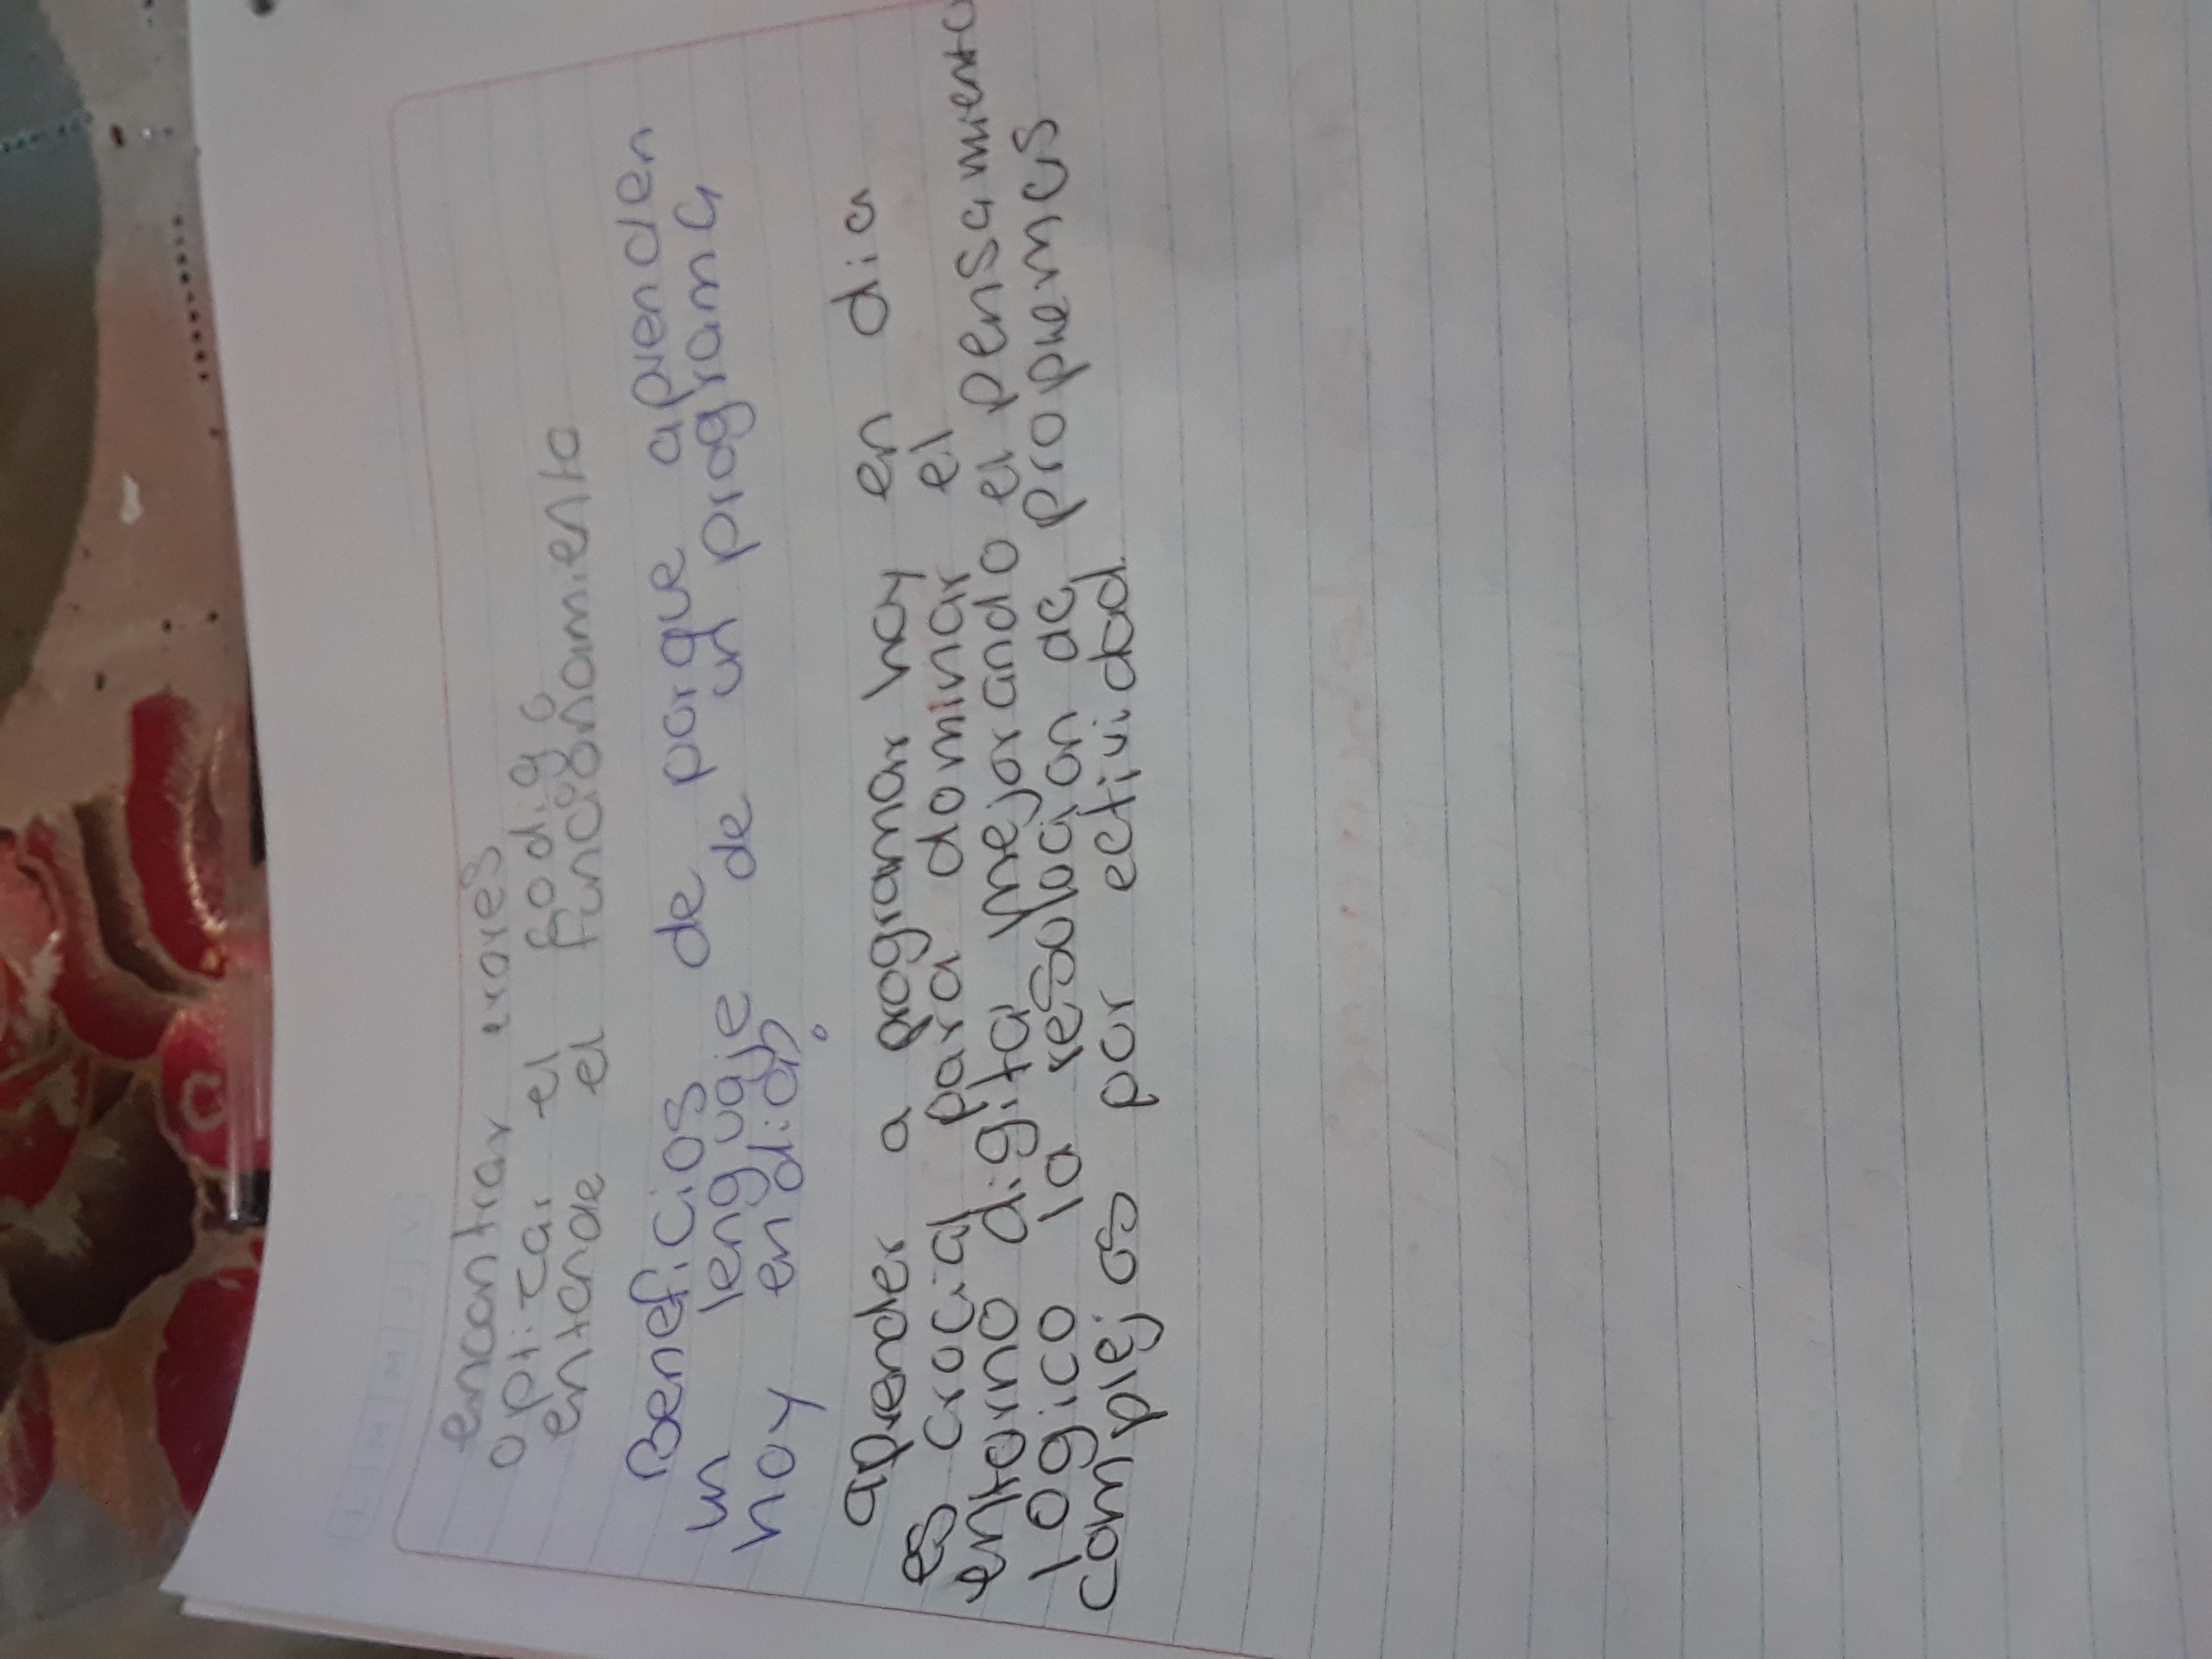 encontrar erores
optizar el codigo
entende el funcionamiento
Beneficios de porque aprenden
un lenguaje de un programa
hoy en dia?
aprender a programar hoy en dia
es crocial para dominar el
entorno digital mejorando el pensamiento
logico la resolocian de
complejos por ectividad.